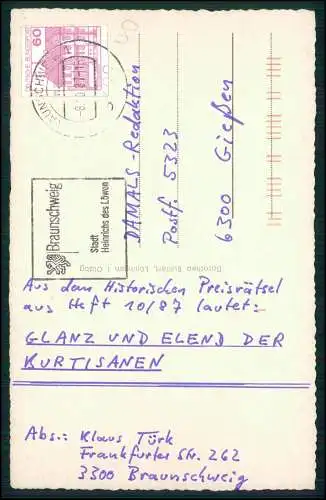 60
DEUTSCHE BUNDESPOST
Braunschweig
Stadt
Heinrichs des Löwen
DAMALS-Redaktion
Postf. 5323
6300 Gießen
Aus dem Historischen Preisrätsel
aus Heft 10/87 lautet:
GLANZ UND ELEND DER
KURTISANEN
Abs.: Klaus Türk
Frankfurter Str. 262
3300 Braunschweig